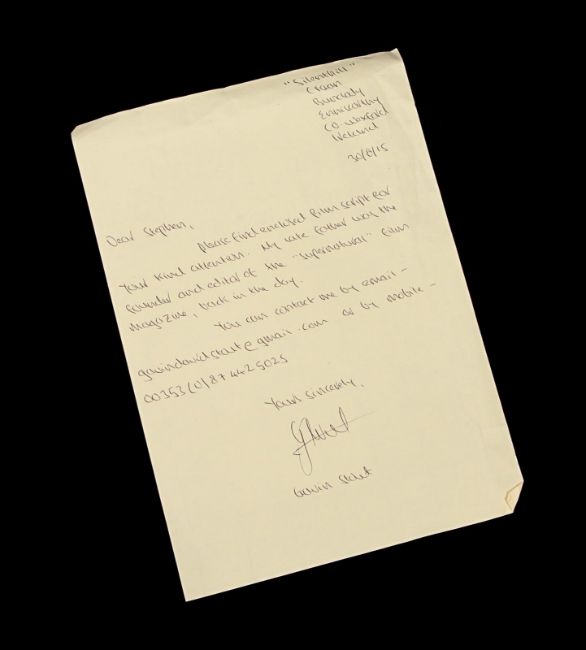 "Silenthill"
Craan
Bunclody
Enniscorthy
Co. Wexford
Ireland
30/8/15
Dear Stephen,
Please find enclosed film script for
your kind attention. My late father was the
founder and editor of the "Supernatural" film
magazine, back in the day.
You can contact me by email -
gavindavidstait@gmail.com or by mobile -
00353(0)87 442 5025
Yours sincerely,
Gavin